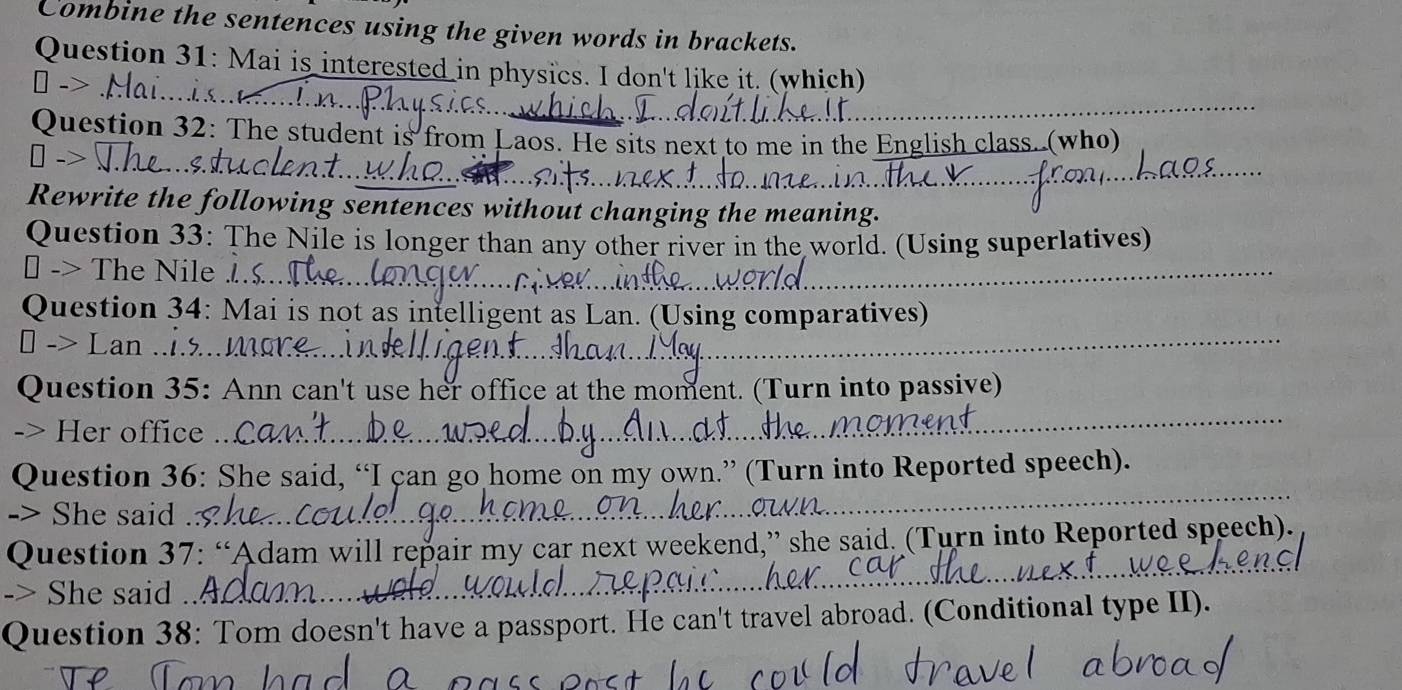 Combine the sentences using the given words in brackets.
Question 31: Mai is interested in physics. I don't like it. (which)
-> Mai is in Physics which I don't like It
Question 32: The student is from Laos. He sits next to me in the English class. (who)
-> The student who sits next to me in the from Laos
Rewrite the following sentences without changing the meaning.
Question 33: The Nile is longer than any other river in the world. (Using superlatives)
-> The Nile is The longer river in the world
Question 34: Mai is not as intelligent as Lan. (Using comparatives)
-> Lan is more intelligent than May
Question 35: Ann can't use her office at the moment. (Turn into passive)
-> Her office can't be used by An at the moment
Question 36: She said, “I can go home on my own.” (Turn into Reported speech).
-> She said she could go home on her own
Question 37: “Adam will repair my car next weekend,” she said. (Turn into Reported speech).
-> She said Adam would repair her car the next weekend
Question 38: Tom doesn't have a passport. He can't travel abroad. (Conditional type II).
If Tom had a passport he could travel abroad